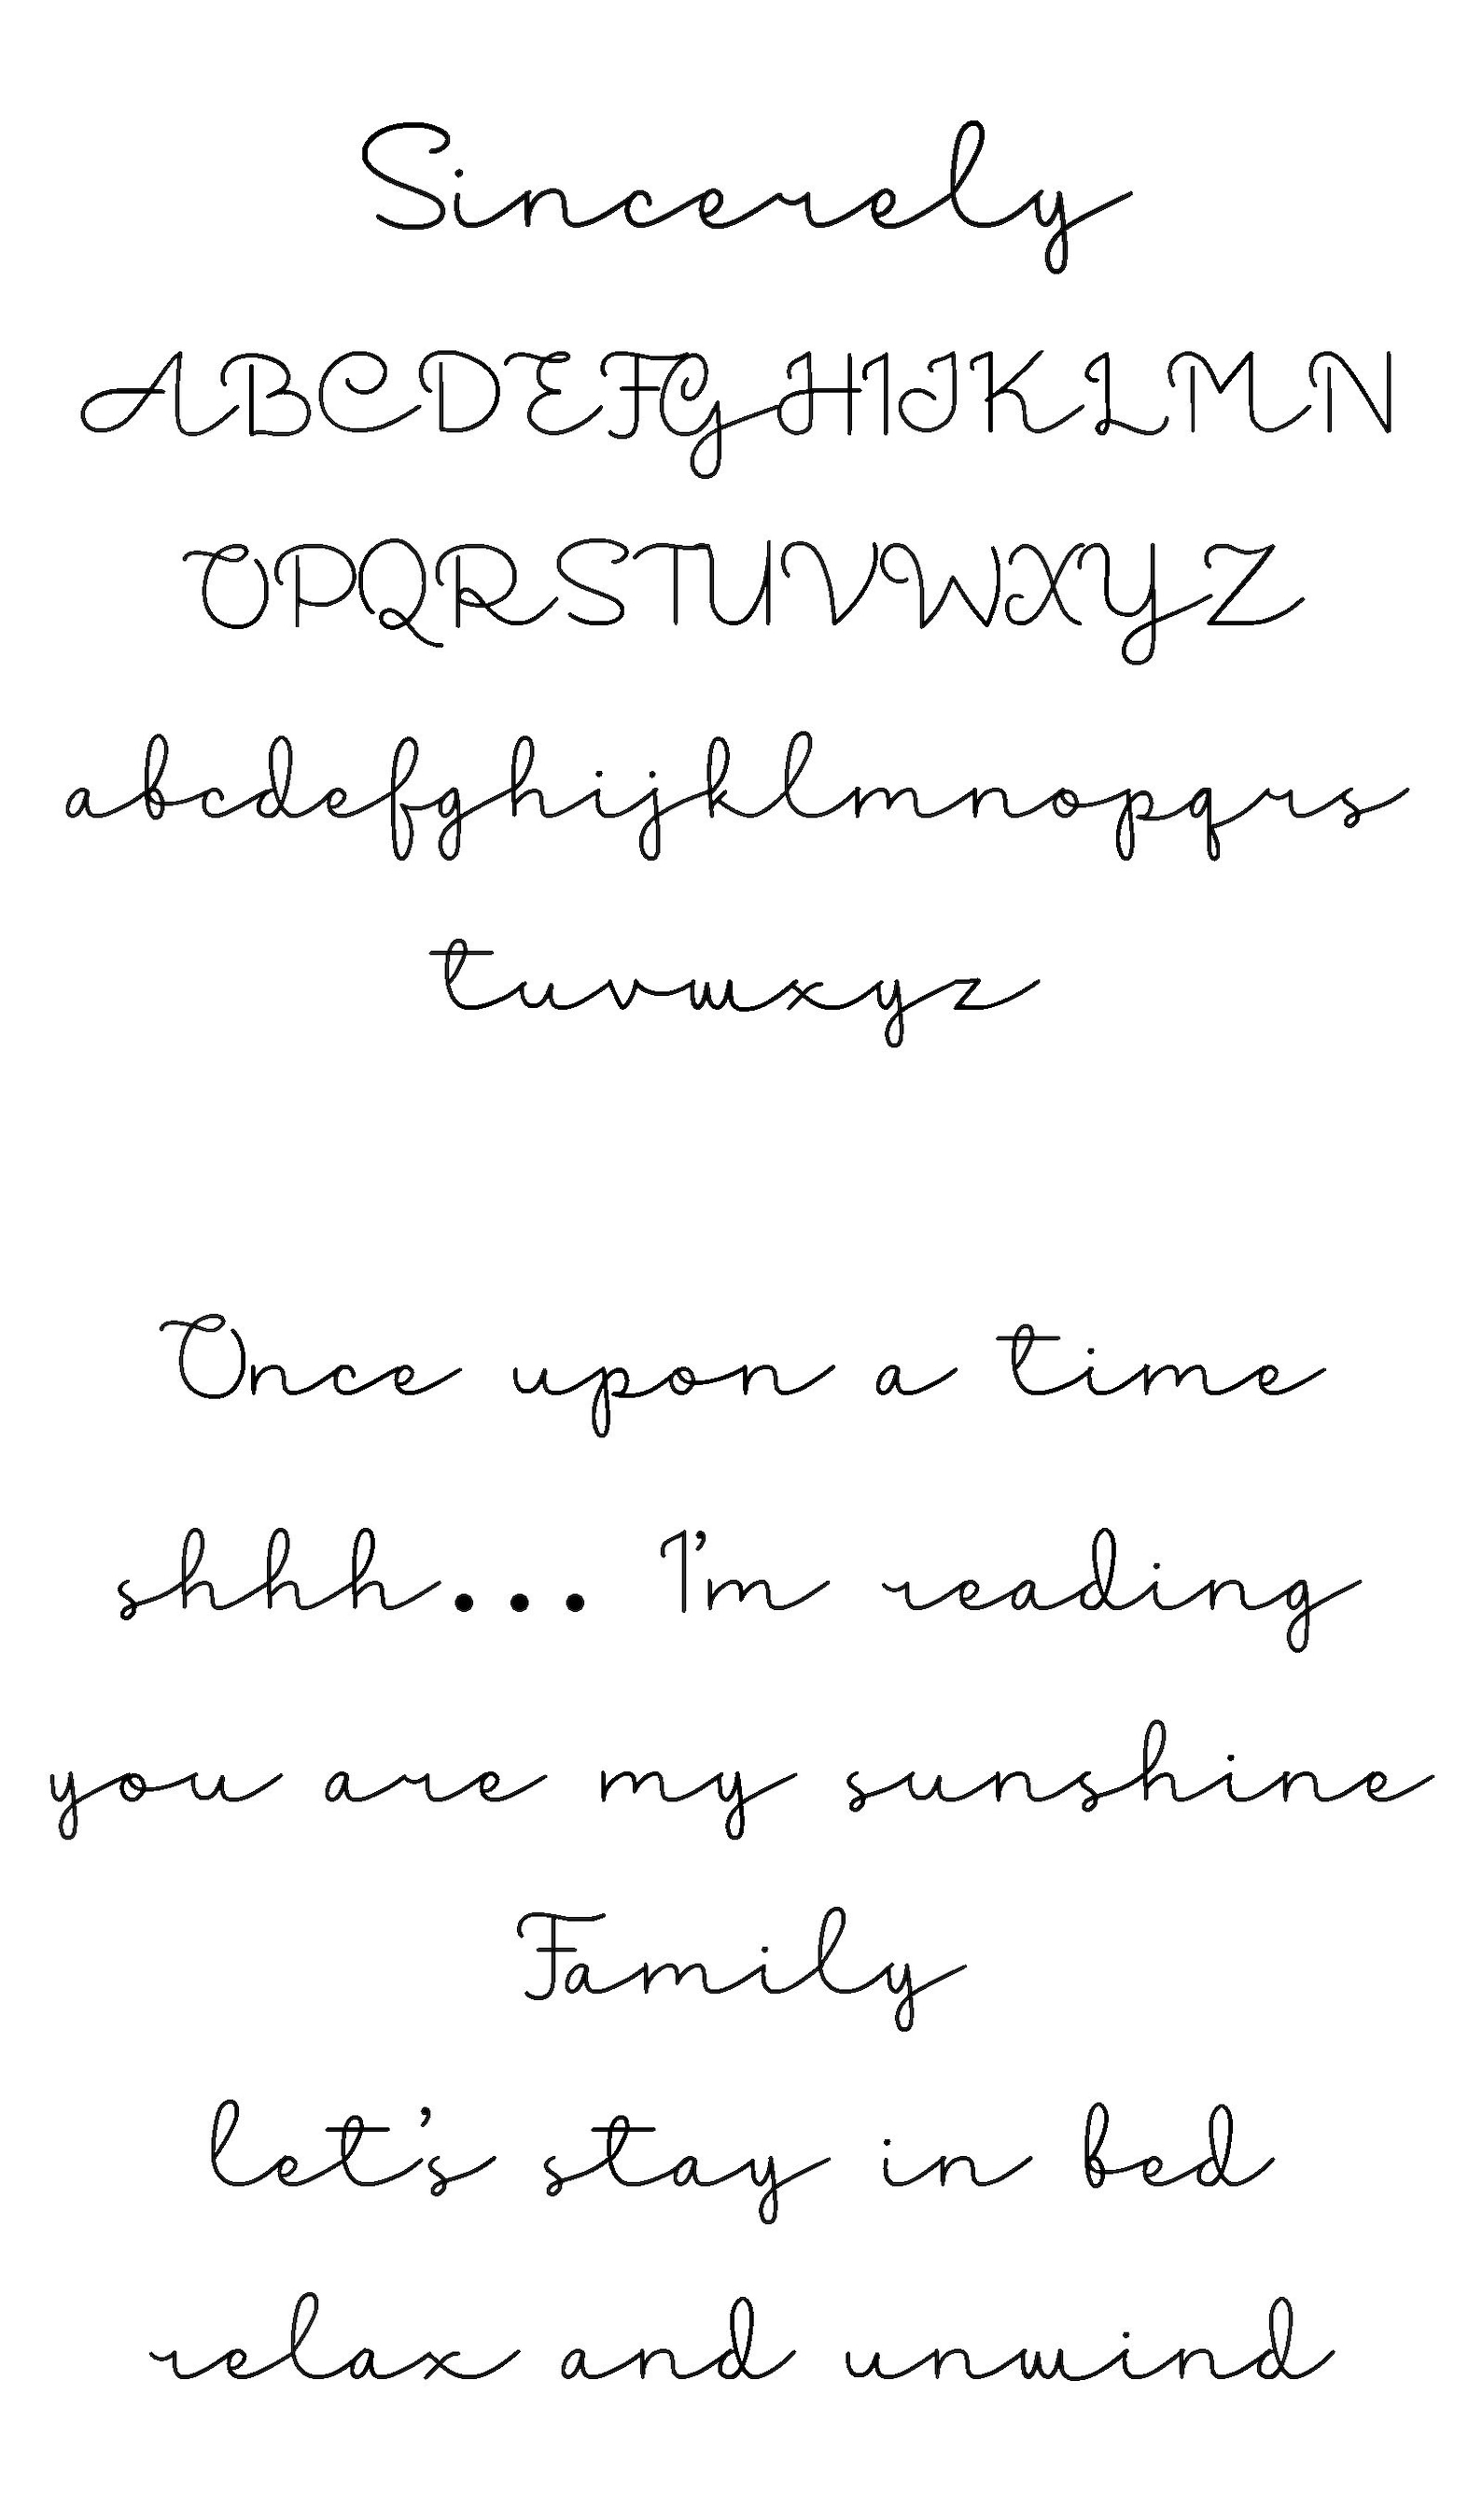 Sincerely
ABCDEFGHIJKLMN
OPQRSTUVWXYZ
abcdefghijklmnopqrs
tuvwxyz
Once upon a time
shhh... I'm reading
you are my sunshine
Family
let's stay in bed
relax and unwind